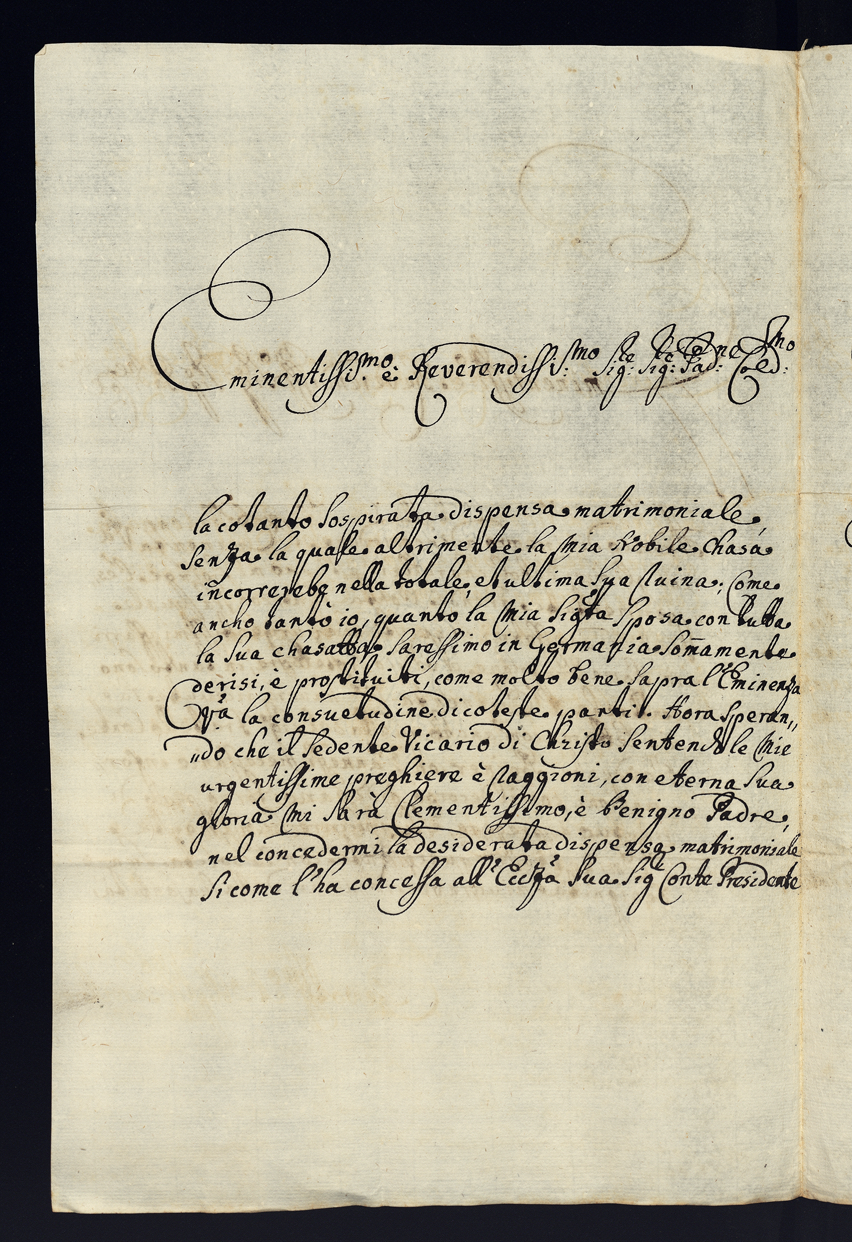 Eminentissi:mo è Reverendissi:mo Sig:re Sig:re Pad:ne Col:mo
la cotanto sospirata dispensa matrimoniale,
senza la quale altrimente la Mia Nobile Chasa
incorrerebe nella totale, et ultima sua Ruina; Come
ancho tanto io, quanto la Mia Sigra Sposa con tutta
la sua chasatta saressimo in Germania som̃amente
derisi, è prostituiti, come molto bene sapra l'Eminenza
Vra la consuetudine di coteste parti. Hora Speran„
„do che il Sedente Vicario di Christo sentendo le Mie
urgentissime preghiere è Raggioni, con eterna Sua
gloria Mi sarà Clementissimo, è benigno Padre,
nel concedermi la desiderata dispensa matrimoniale
Si come l'ha concessa all' Ecc.za Sua Sigr Conte Presidente